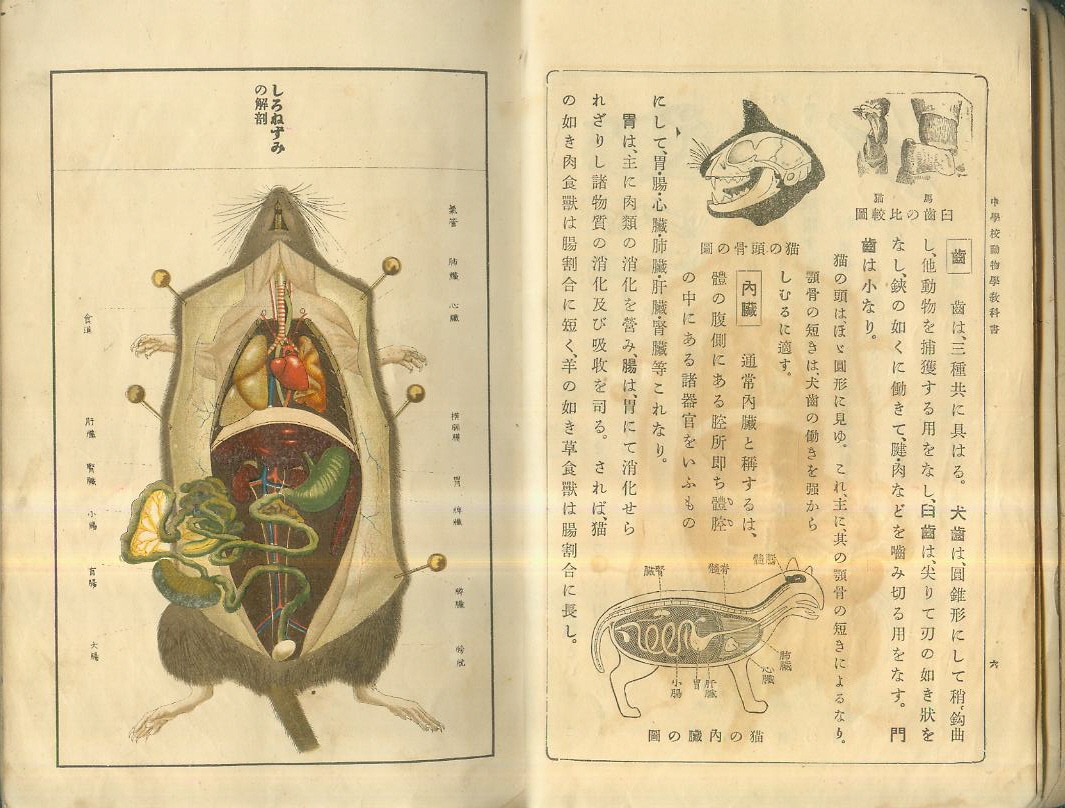 中學校動物學教科書
六
馬
猫
臼齒の比較圖
齒　齒は、三種共に具はる。犬齒は、圓錐形にして稍〻鈎曲
し、他動物を捕獲する用をなし、臼齒は、尖りて刃の如き狀を
なし、鋏の如くに働きて、腱・肉などを嚙み切る用をなす。門
齒は小なり。
猫の頭はほゞ圓形に見ゆ。これ、主に、其の顎骨の短きによるなり。
顎骨の短きは、犬齒の働きを强から
しむるに適す。
猫の頭骨の圖
內臟　通常內臟と稱するは、
體の腹側にある腔所卽ち體腔
の中にある諸器官をいふもの
にして、胃・腸・心臟・肺臟・肝臟・腎臟等これなり。
胃は、主に肉類の消化を營み、腸は、胃にて消化せら
れざりし諸物質の消化及び吸收を司る。されば、猫
の如き肉食獸は腸割合に短く、羊の如き草食獸は腸割合に長し。
腦髓
脊髓
腎臟
肺臟
心臟
肝臟
胃
小腸
猫の內臟の圖
しろねずみ
の解剖
氣管
肺臟
心臟
胃
脾臟
膀胱
食道
肝臟
腎臟
小腸
盲腸
大腸